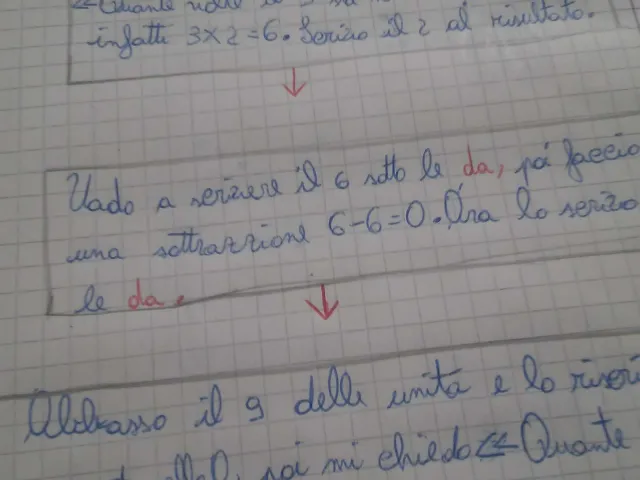 «Quante volte il 3
infatti 3x2=6. Scrivo il 2 al risultato.
Vado a scrivere il 6 sotto le da, poi faccio
una sottrazzione 6-6=0. Ora lo scrivo
le da.
Abbasso il 9 delle unità e lo riscri
poi mi chiedo «Quante